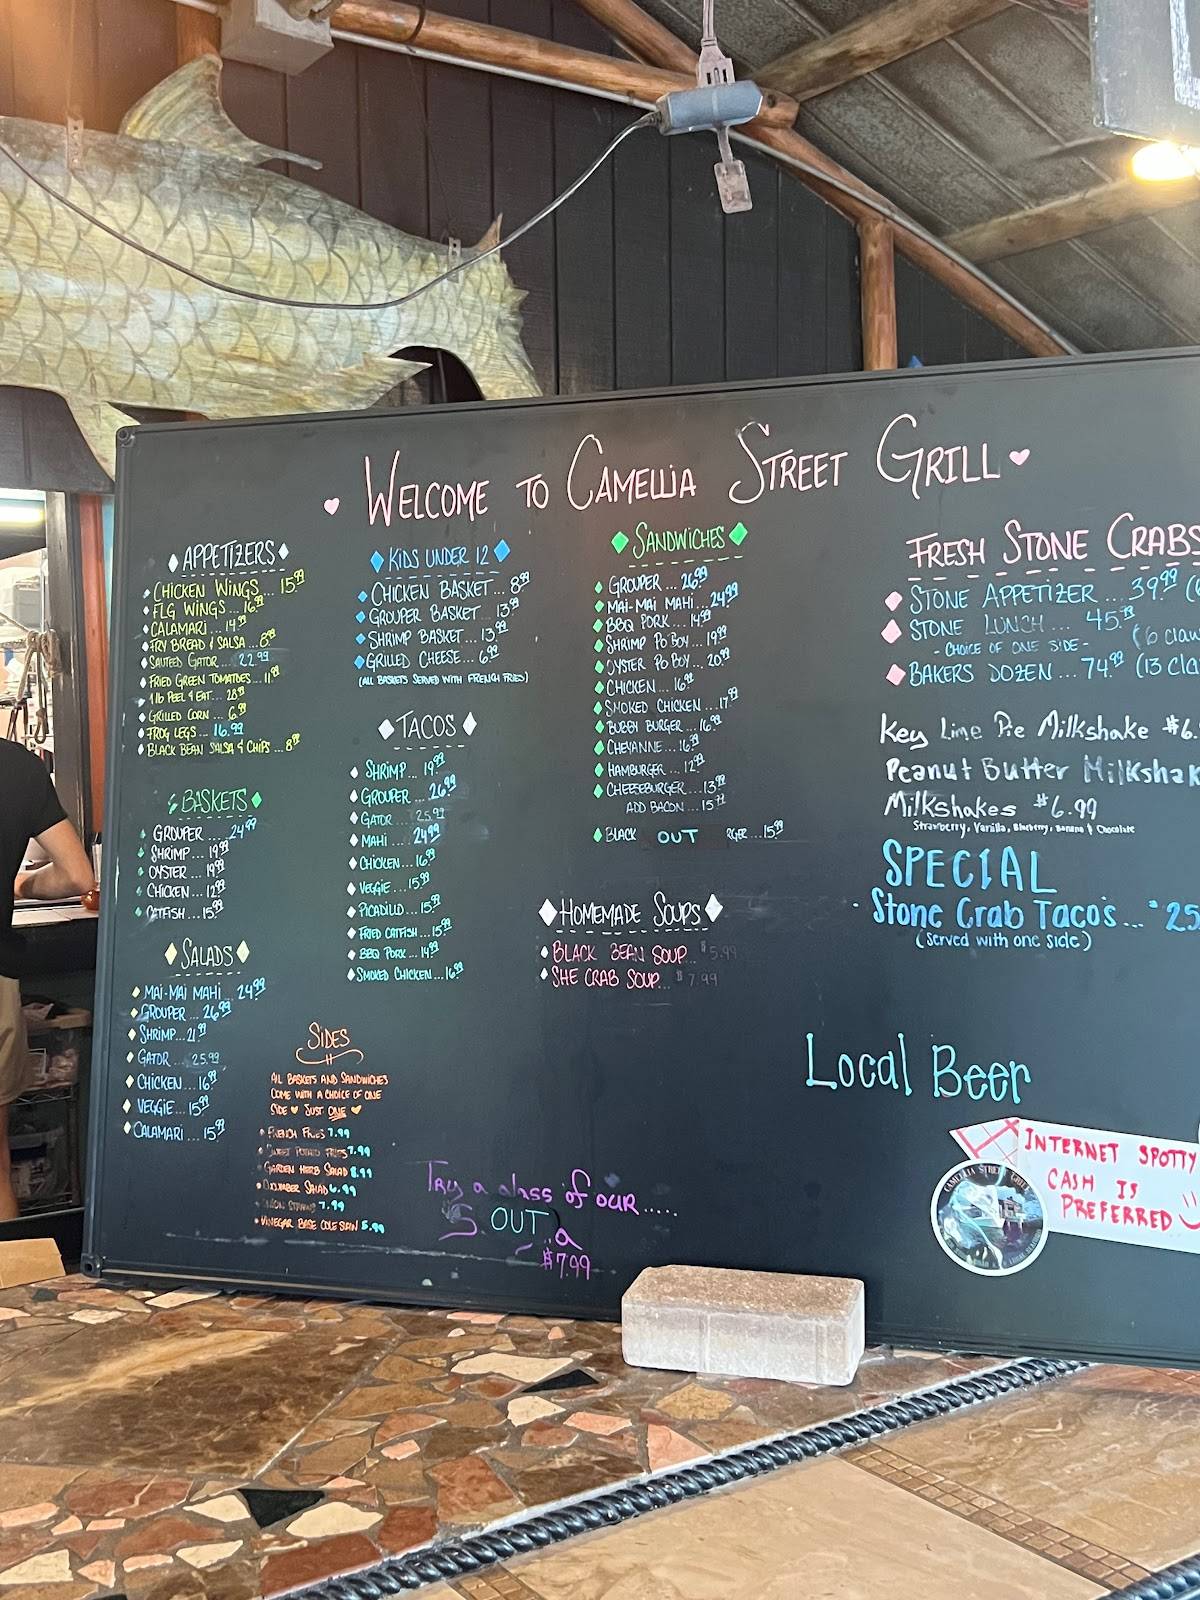 WELCOME TO CAMELLIA STREET GRILL
APPETIZERS
CHICKEN WINGS ... 15.99
FLG WINGS ... 16.99
CALAMARI ... 14.99
FRY BREAD & SALSA ... 8.99
SAUTEED GATOR ... 22.99
FRIED GREEN TOMATOES ... 11.99
1 lb PEEL & EAT ... 28.99
GRILLED CORN ... 6.99
FROG LEGS ... 16.99
BLACK BEAN SALSA & CHIPS ... 8.99
BASKETS
GROUPER .... 24.99
SHRIMP ... 19.99
OYSTER ... 19.99
CHICKEN ... 12.99
CATFISH ... 15.99
SALADS
MAI-MAI MAHI ... 24.99
GROUPER ... 26.99
SHRIMP... 21.99
GATOR ... 25.99
CHICKEN ... 16.99
VEGGIE ... 15.99
CALAMARI ... 15.99
SIDES
ALL BASKETS AND SANDWICHES
COME WITH A CHOICE OF ONE
SIDE JUST ONE
FRENCH FRIES 7.99
SWEET POTATO FRIES 7.99
GARDEN HERB SALAD 8.99
CUCUMBER SALAD 6.99
ONION STRAWS 7.99
VINEGAR BASE COLE SLAW 5.99
KIDS UNDER 12
CHICKEN BASKET ... 8.99
GROUPER BASKET ... 13.99
SHRIMP BASKET ... 13.99
GRILLED CHEESE ... 6.99
(ALL BASKETS SERVED WITH FRENCH FRIES)
TACOS
SHRIMP ... 19.99
GROUPER ... 26.99
GATOR ... 25.99
MAHI ... 24.99
CHICKEN ... 16.99
VEGGIE ... 15.99
PICADILLO ... 15.99
FRIED CATFISH ... 15.99
BBQ PORK ... 14.99
SMOKED CHICKEN ... 16.99
SANDWICHES
GROUPER ... 26.99
MAI-MAI MAHI ... 24.99
BBQ PORK ... 14.99
SHRIMP PO BOY ... 19.99
OYSTER PO BOY ... 20.99
CHICKEN ... 16.99
SMOKED CHICKEN ... 17.99
BUBBY BURGER ... 16.99
CHEYANNE ... 16.99
HAMBURGER ... 12.99
CHEESEBURGER ... 13.99
ADD BACON ... 15.99
BLACK OUT RGER ... 15.99
HOMEMADE SOUPS
BLACK BEAN SOUP... $5.99
SHE CRAB SOUP... $7.99
Try a glass of our .....
S. OUT a
$7.99
FRESH STONE CRABS
STONE APPETIZER ... 39.99 (6
STONE LUNCH ... 45.99
- CHOICE OF ONE SIDE - (6 claw
BAKERS DOZEN ... 74.99 (13 cla
Key Lime Pie Milkshake $6.
Peanut Butter Milkshak
Milkshakes $6.99
Strawberry, Vanilla, Blueberry, Banana & Chocolate
SPECIAL
Stone Crab Taco's ... $25
(served with one side)
Local Beer
INTERNET SPOTTY
CASH IS
PREFERRED
CAMELLIA STREET GRILL